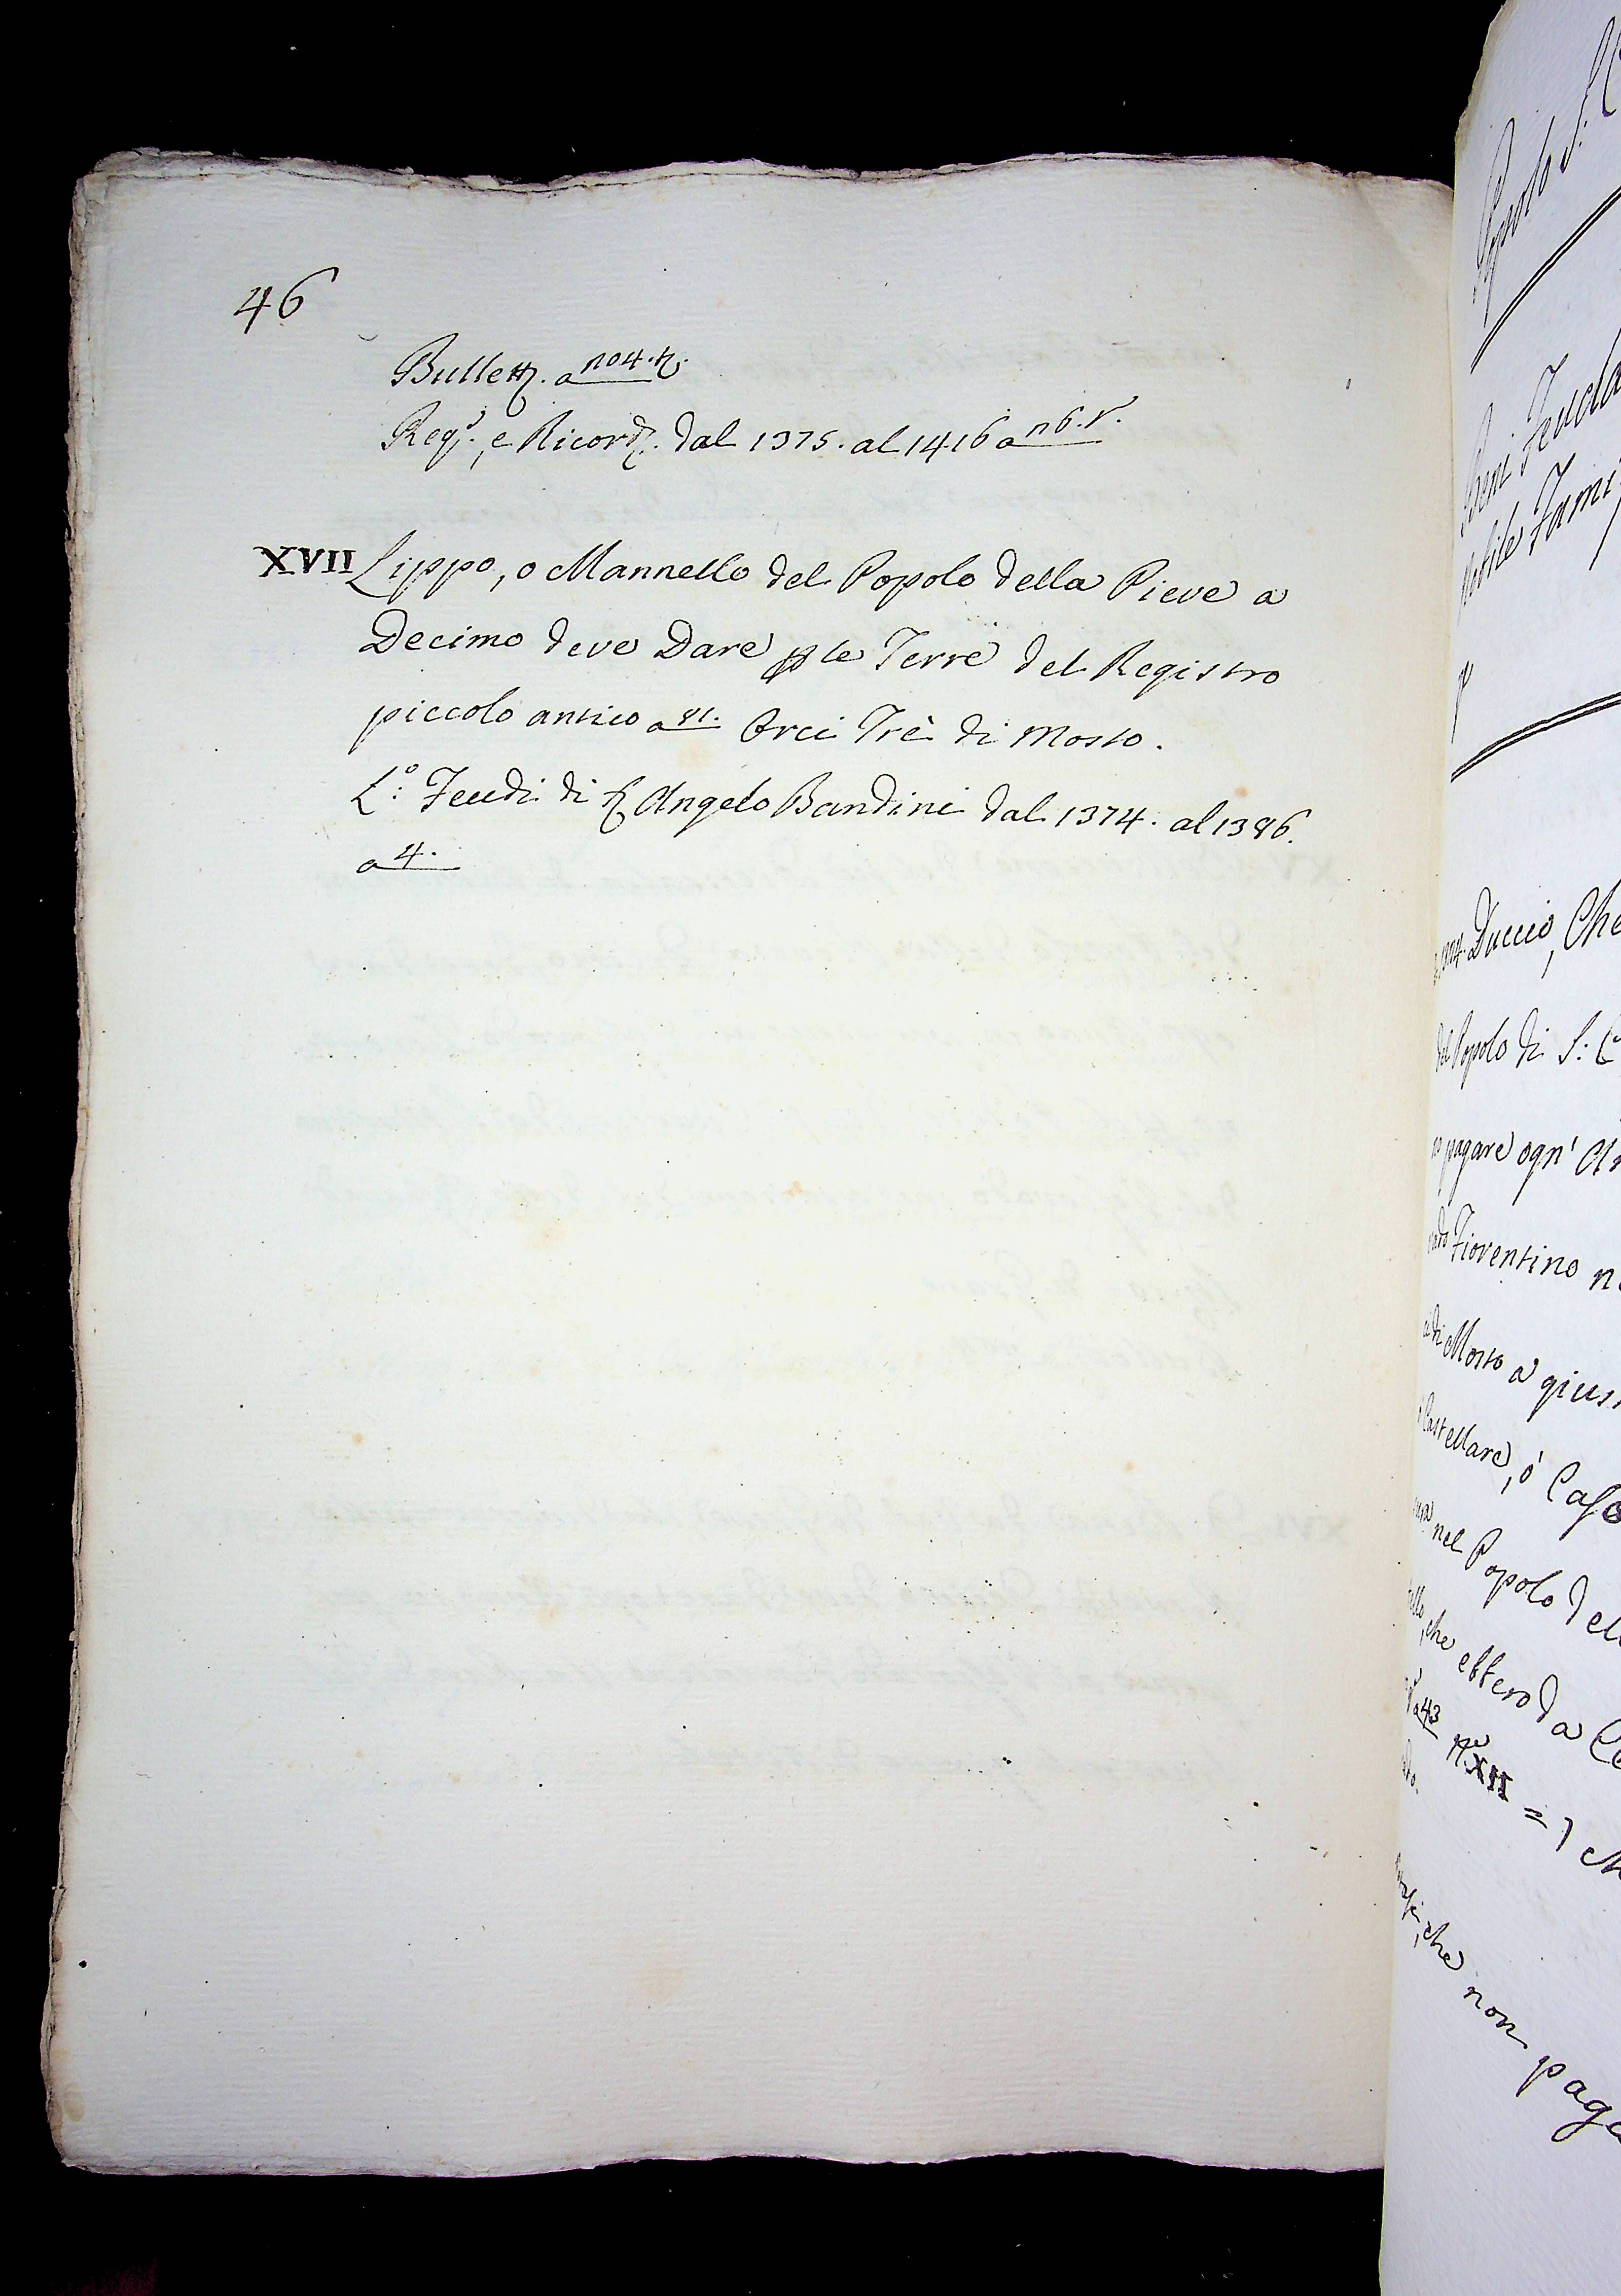 46
Bullett. a n04.t.
Reg.º, e Ricord. dal 1375. al 1416 a n6.r.
XVII Lippo, o Mannello del Popolo della Pieve a
Decimo deve Dare p le Terre del Registro
piccolo antico a 81. Orci Trè di Mosto.
L.º Feudi di Angelo Bandini dal 1374. al 1386.
a 4.
Popolo S.
Beni Feuda
Nobile Fami
Duccio, Che
del Popolo di S: C
pagare ogn' An
Fiorentino n
di Mosto a gius
Castellare, ò Caso
nel Popolo del
che ebbero da Ce
a 43 N.º XII =
che non paga